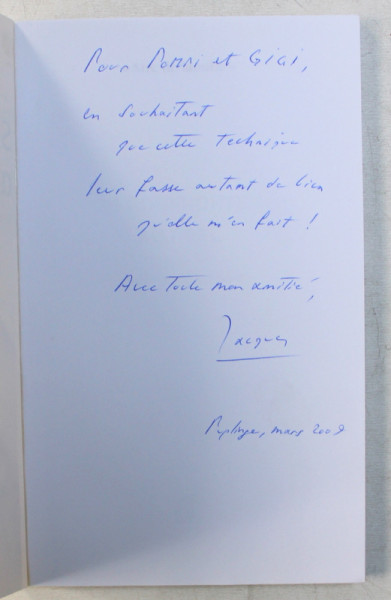 Pour Pomi et GIGI,
en souhaitant
que cette technique
leur fasse autant de bien
qu'elle m'en fait !
Avec toute mon amitié,
Jacques
Puplinge, mars 2009